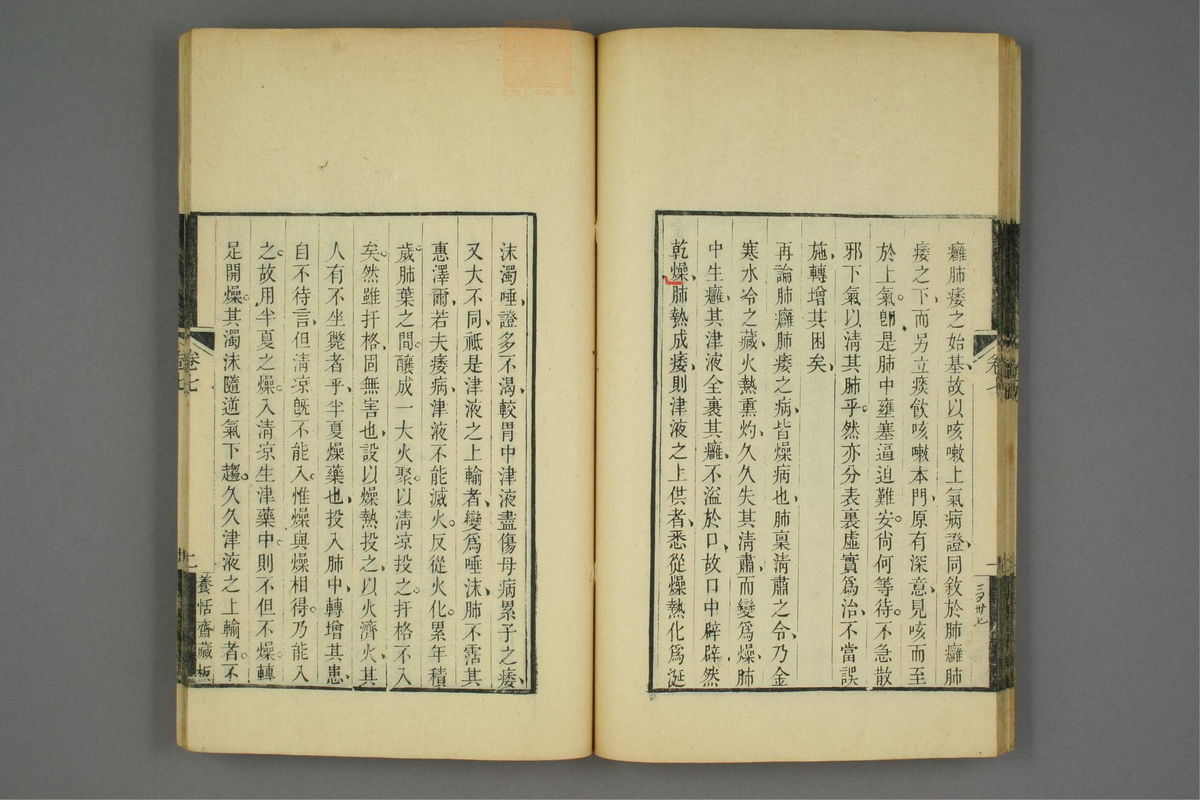 癰肺痿之始基故以咳嗽上氣病證同敘於肺癰肺
痿之下而另立痰飲咳嗽本門原有深意見咳而至
於上氣卽是肺中壅塞逼迫難安尙何等待不急散
邪下氣以淸其肺乎然亦分表裏虛實爲治不當誤
施轉增其困矣
再論肺癰肺痿之病皆燥病也肺稟淸肅之令乃金
寒水冷之藏火熱熏灼久久失其淸肅而變爲燥肺
中生癰其津液全裹其癰不溢於口故口中辟辟然
乾燥肺熱成痿則津液之上供者悉從燥熱化爲涎
沫濁唾證多不渴較胃中津液盡傷母病累子之痿
又大不同祗是津液之上輸者變爲唾沫肺不霑其
惠澤爾若夫痿病津液不能滅火反從火化累年積
歲肺葉之間釀成一大火聚以淸凉投之扞格不入
矣然雖扞格固無害也設以燥熱投之以火濟火其
人有不坐斃者乎半夏燥藥也投入肺中轉增其患
自不待言但淸凉旣不能入惟燥與燥相得乃能入
之故用半夏之燥入淸凉生津藥中則不但不燥轉
足開燥其濁沫隨逆氣下趨久久津液之上輸者不
卷七
養恬齋藏板